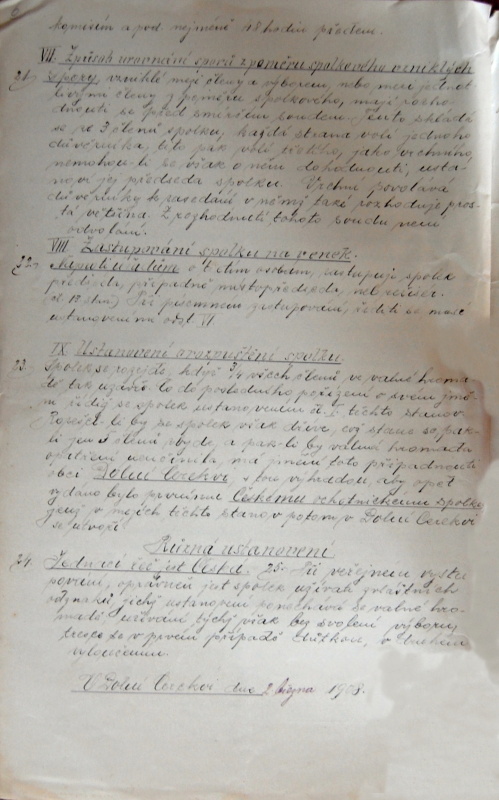 6
nejméně 18 hodin předem.
VII. Způsob urovnání sporů z poměru spolkového vzniklých
21. Spory, vzniklé mezi členy a výborem, nebo mezi jednot
livými členy z poměru spolkového, mají rozho-
dnouti se před smírčím soudem. Tento skládá
se ze 3 členů spolku, každá strana volí jednoho
důvěrníka, tito pak volí třetího, jako vrchního,
nemohou-li se však o něm dohodnouti, usta-
noví jej předseda spolku. Vrchní povolává
důvěrníky k zasedání v němž také rozhoduje pros-
tá většina. Z rozhodnutí tohoto soudu není
odvolání.
VIII. Zastupování spolku na venek.
22. Naproti úřadům a třetím osobám, zastupuje spolek
předseda, případně místopředseda, neb režisér.
Při písemném zastupování, řídí se
ustanovením odst. VI.
IX Ustanovení o rozpuštění spolku.
23. Spolek se rozejde, když 3/4 všech členů ve valné hroma-
dě tak usnese. Co do posledního pořízení o svém jmě-
ní řídí se spolek ustanovením čl. těchto stanov.
Rozešel-li by se spolek však dříve, což stane se, pak-
li jen členů zbyde, a pak-li by valná hromada
opatření neučinila, má jmění toto připadnouti
obci Dolní Cerekvi, s tou výhradou, aby opět
vydáno bylo prvnímu Českému ochotnickému spolku,
jenž v mezích těchto stanov potom v Dolní Cerekvi
se utvoří.
Různá ustanovení
24. Jednací řeč jest Česká. 25. Při veřejném vystu
pování, oprávněn jest spolek užívati zvláštních
odznaků, jichž ustanovení ponechává se valné hro-
madě, užívání jichž však bez svolení výboru,
tresce se v prvém případě důtkou, v druhém
vyloučením.
V Dolní Cerekvi dne 2 března 1908.